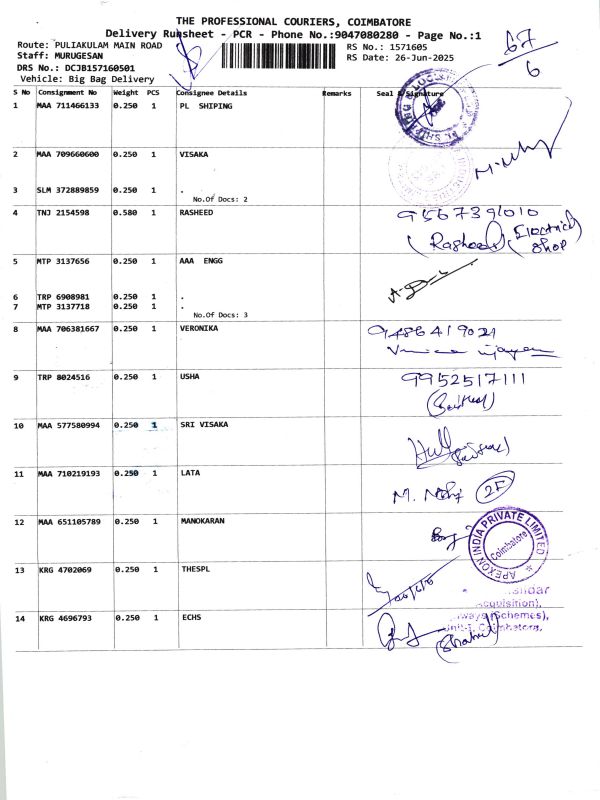 THE PROFESSIONAL COURIERS, COIMBATORE
Delivery Runsheet - PCR - Phone No.:9047080280 - Page No.:1
Route: PULIAKULAM MAIN ROAD RS No.: 1571605
Staff: MURUGESAN RS Date: 26-Jun-2025
DRS No.: DCJB157160501
Vehicle: Big Bag Delivery
67
6
S No Consignment No Weight PCS Consignee Details Remarks Seal & Signature
1 MAA 711466133 0.250 1 PL SHIPING
2 MAA 709660600 0.250 1 VISAKA
3 SLM 372889859 0.250 1 .
No.Of Docs: 2
4 TNJ 2154598 0.580 1 RASHEED 9567391010
(Rasheed) (Electrical Shop
5 MTP 3137656 0.250 1 AAA ENGG
6 TRP 6908981 0.250 1 .
7 MTP 3137718 0.250 1 .
No.Of Docs: 3
8 MAA 706381667 0.250 1 VERONIKA 9486419021
9 TRP 8024516 0.250 1 USHA 9952517111
10 MAA 577580994 0.250 1 SRI VISAKA
11 MAA 710219193 0.250 1 LATA M. 2F
12 MAA 651105789 0.250 1 MANOKARAN
APEXON INDIA PRIVATE LIMITED
Coimbatore
13 KRG 4702069 0.250 1 THESPL
cquisition),
ways (Schemes),
Unit-I, Coimbatore.
14 KRG 4696793 0.250 1 ECHS